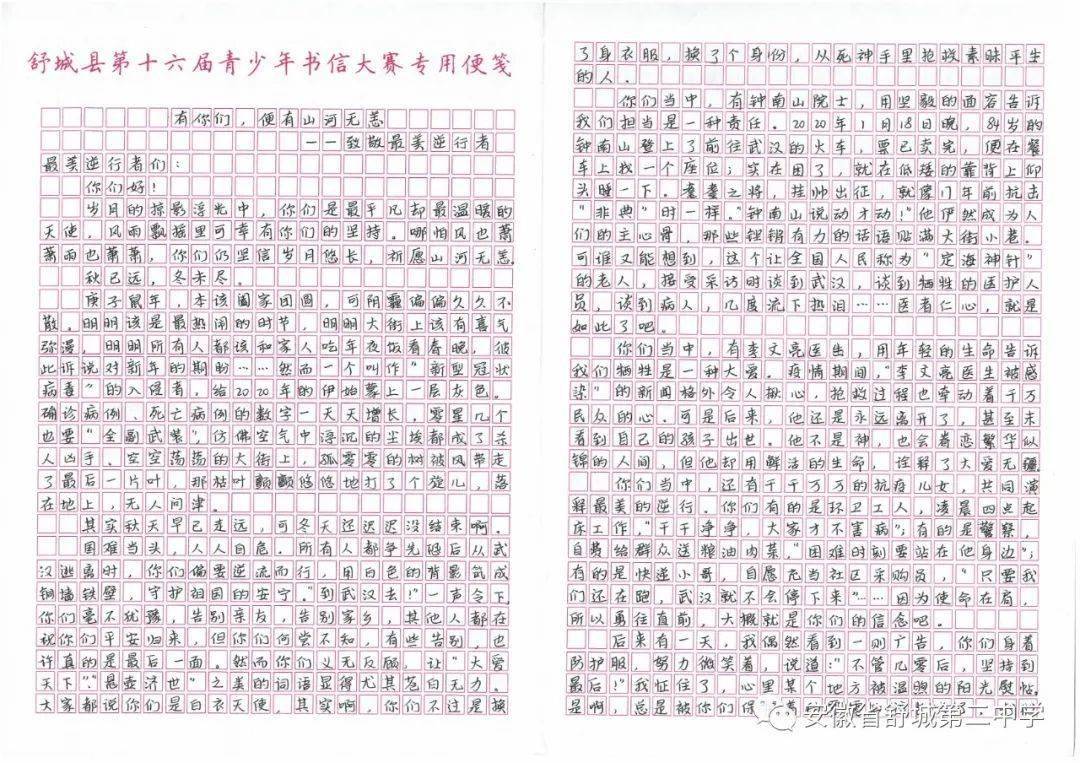 舒城县第十六届青少年书信大赛专用便笺
有你们，便有山河无恙
——致敬最美逆行者
最美逆行者们：
你们好！
岁月的掠影浮光中，你们是最平凡却最温暖的
天使，风雨飘摇里可幸有你们的坚持。哪怕风也萧
萧雨也萧萧，你们仍坚信岁月悠长，祈愿山河无恙。
秋已远，冬未尽。
庚子鼠年，本该阖家团圆，可阴霾偏偏久久不
散。明明该是最热闹的时节，明明大街上该有喜气
弥漫，明明所有人都该和家人吃年夜饭看春晚，彼
此诉说对新年的期盼……然而一个叫作“新型冠状
病毒”的入侵者，给2020年的伊始蒙上一层灰色。
确诊病例、死亡病例的数字一天天增长，零星几个
也要“全副武装”，仿佛空气中浮沉的尘埃都成了杀
人凶手。空空荡荡的大街上，孤零零的树被风带走
了最后一片叶，那枯叶颤颤悠悠地打了个旋儿，落
在地上，无人问津。
其实秋天早已走远，可冬天还迟迟没结束啊。
国难当头，人人自危。所有人都争先恐后从武
汉逃离时，你们偏要逆流而行，用白色的背影筑成
铜墙铁壁，守护祖国的安宁。“到武汉去！”一声令下，
你们毫不犹豫，告别亲友，告别家乡，其他人都在
祝你们平安归来，但你们何尝不知，有些告别，也
许真的是最后一面。然而你们义无反顾，让“大爱
天下”“悬壶济世”之类的词语显得尤其苍白无力。
大家都说你们是白衣天使，其实啊，你们不过是换
了身衣服，换了个身份，从死神手里抢救素昧平生
的人。
你们当中，有钟南山院士，用坚毅的面容告诉
我们担当是一种责任。2020年1月18日晚，84岁的
钟南山登上了前往武汉的火车，票已卖完，便在餐
车上找一个座位；实在困了，就在低矮的靠背上仰
头睡一下。耄耋之将，挂帅出征，就像17年前抗击
“非典”时一样。“钟南山说动才动！”他俨然成为人
们的主心骨，那些铿锵有力的话语贴满大街小巷。
可谁又能想到，这个让全国人民称为“定海神针”
的老人，接受采访时谈到武汉，谈到牺牲的医护人
员，谈到病人，几度流下热泪……医者仁心，就是
如此了吧。
你们当中，有李文亮医生，用年轻的生命告诉
我们牺牲是一种大爱。疫情期间，“李文亮医生被感
染”的新闻格外令人揪心，抢救过程也牵动着千万
民众的心。可是后来，他还是永远离开了，甚至未
看到自己的孩子出世。他不是神，也会眷恋繁华似
锦的人间，但他却用鲜活的生命，诠释了大爱无疆。
你们当中，还有千千万万的抗疫儿女，共同演
释最美的逆行。你们有的是环卫工人，凌晨四点起
床工作，“干干净净，大家才不害病”；有的是警察，
自费给群众送粮油肉菜，“困难时刻要站在他身边”；
有的是快递小哥，自愿充当社区采购员，“只要我
们还在跑，武汉就不会停下来”……因为使命在肩，
所以勇往直前，大概就是你们的信念吧。
后来有一天，我偶然看到一则广告，你们身着
防护服，努力微笑着，说道：“不管几零后，坚持到
最后！”我怔住了，心里某个地方被温煦的阳光慰帖。
是啊，总是被你们保
安徽省舒城第二中学